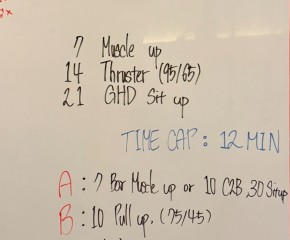 7 Muscle up
14 Thruster (95/65)
21 GHD Sit up
TIME CAP: 12 MIN
A: 7 Bar Muscle up or 10 C2B, 30 Situp
B: 10 Pull up. (75/45)